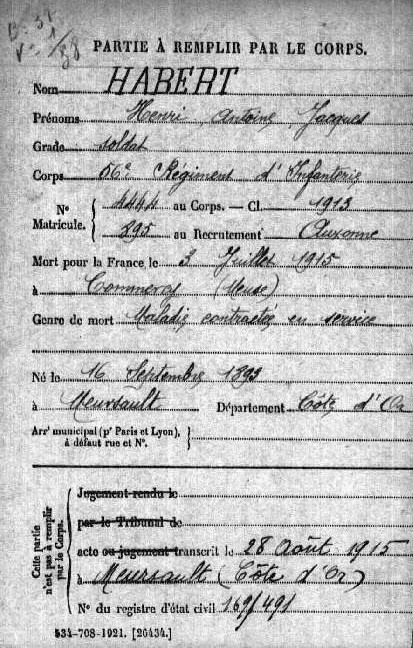 B. 31
V. 1
88
PARTIE À REMPLIR PAR LE CORPS.
Nom HABERT
Prénoms Henri Antoine Jacques
Grade soldat
Corps 56e Régiment d'Infanterie
N° Matricule. { 4444 au Corps. — Cl. 1913
295 au Recrutement Auxonne
Mort pour la France le 3 Juillet 1915
à Commercy (Meuse)
Genre de mort Maladie contractée en service
Né le 16 Septembre 1893
à Meursault Département Côte d'Or
Arrt municipal (pr Paris et Lyon), à défaut rue et N°. }
Cette partie n'est pas à remplir par le Corps. {
Jugement rendu le
par le Tribunal de
acte ou jugement transcrit le 28 Août 1915
à Meursault (Côte d'Or)
N° du registre d'état civil 169/491
534-708-1921. [26434.]